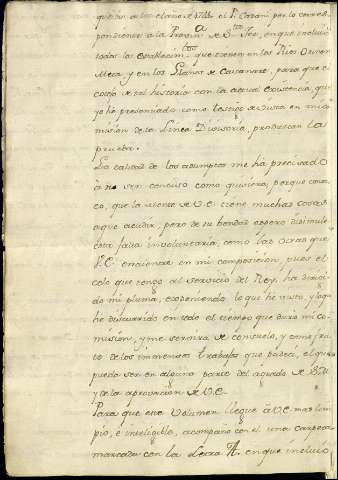 que dio a luz el año de 1741 el P. Casani por lo corres-
pondiente a la Provinª de Sta Fee, en que incluió
todos los establecimtos que tienen en los Rios Orinoco,
Meta y en los Llanos de Casanare, para que el
cotejo de tal historia con la actual existencia, que
yo he presenciado como testigo de vista en mi co-
mision de la Linea Divisoria, produzcan la
prueba.
La calidad de los asumptos me ha precisado
à no ser conciso como quisiera, porque conoz-
co, que la mente de V.E. tiene muchas cosas
a que acudir, pero de su bondad espero disimule
esta falta involuntaria, como las otras que
V.E. encuentre en mi composicion, pues el
celo que tengo al servicio del Rey, ha dirigi-
do mi pluma, exponiendo lo que he visto, y lo q.
he discurrido en todo el tiempo que duró mi co-
mision, y me servirá de consuelo, y como fru-
to de los inmensos trabajos que padecí, el que
pueda ser en alguna parte del agrado de S.M.
y de la aprovacion de V.E.
Para que este Volumen llegue à V.E. mas lim-
pio, è inteligible, acompaño con él una carpeta
marcada con la Letra A. en que incluió